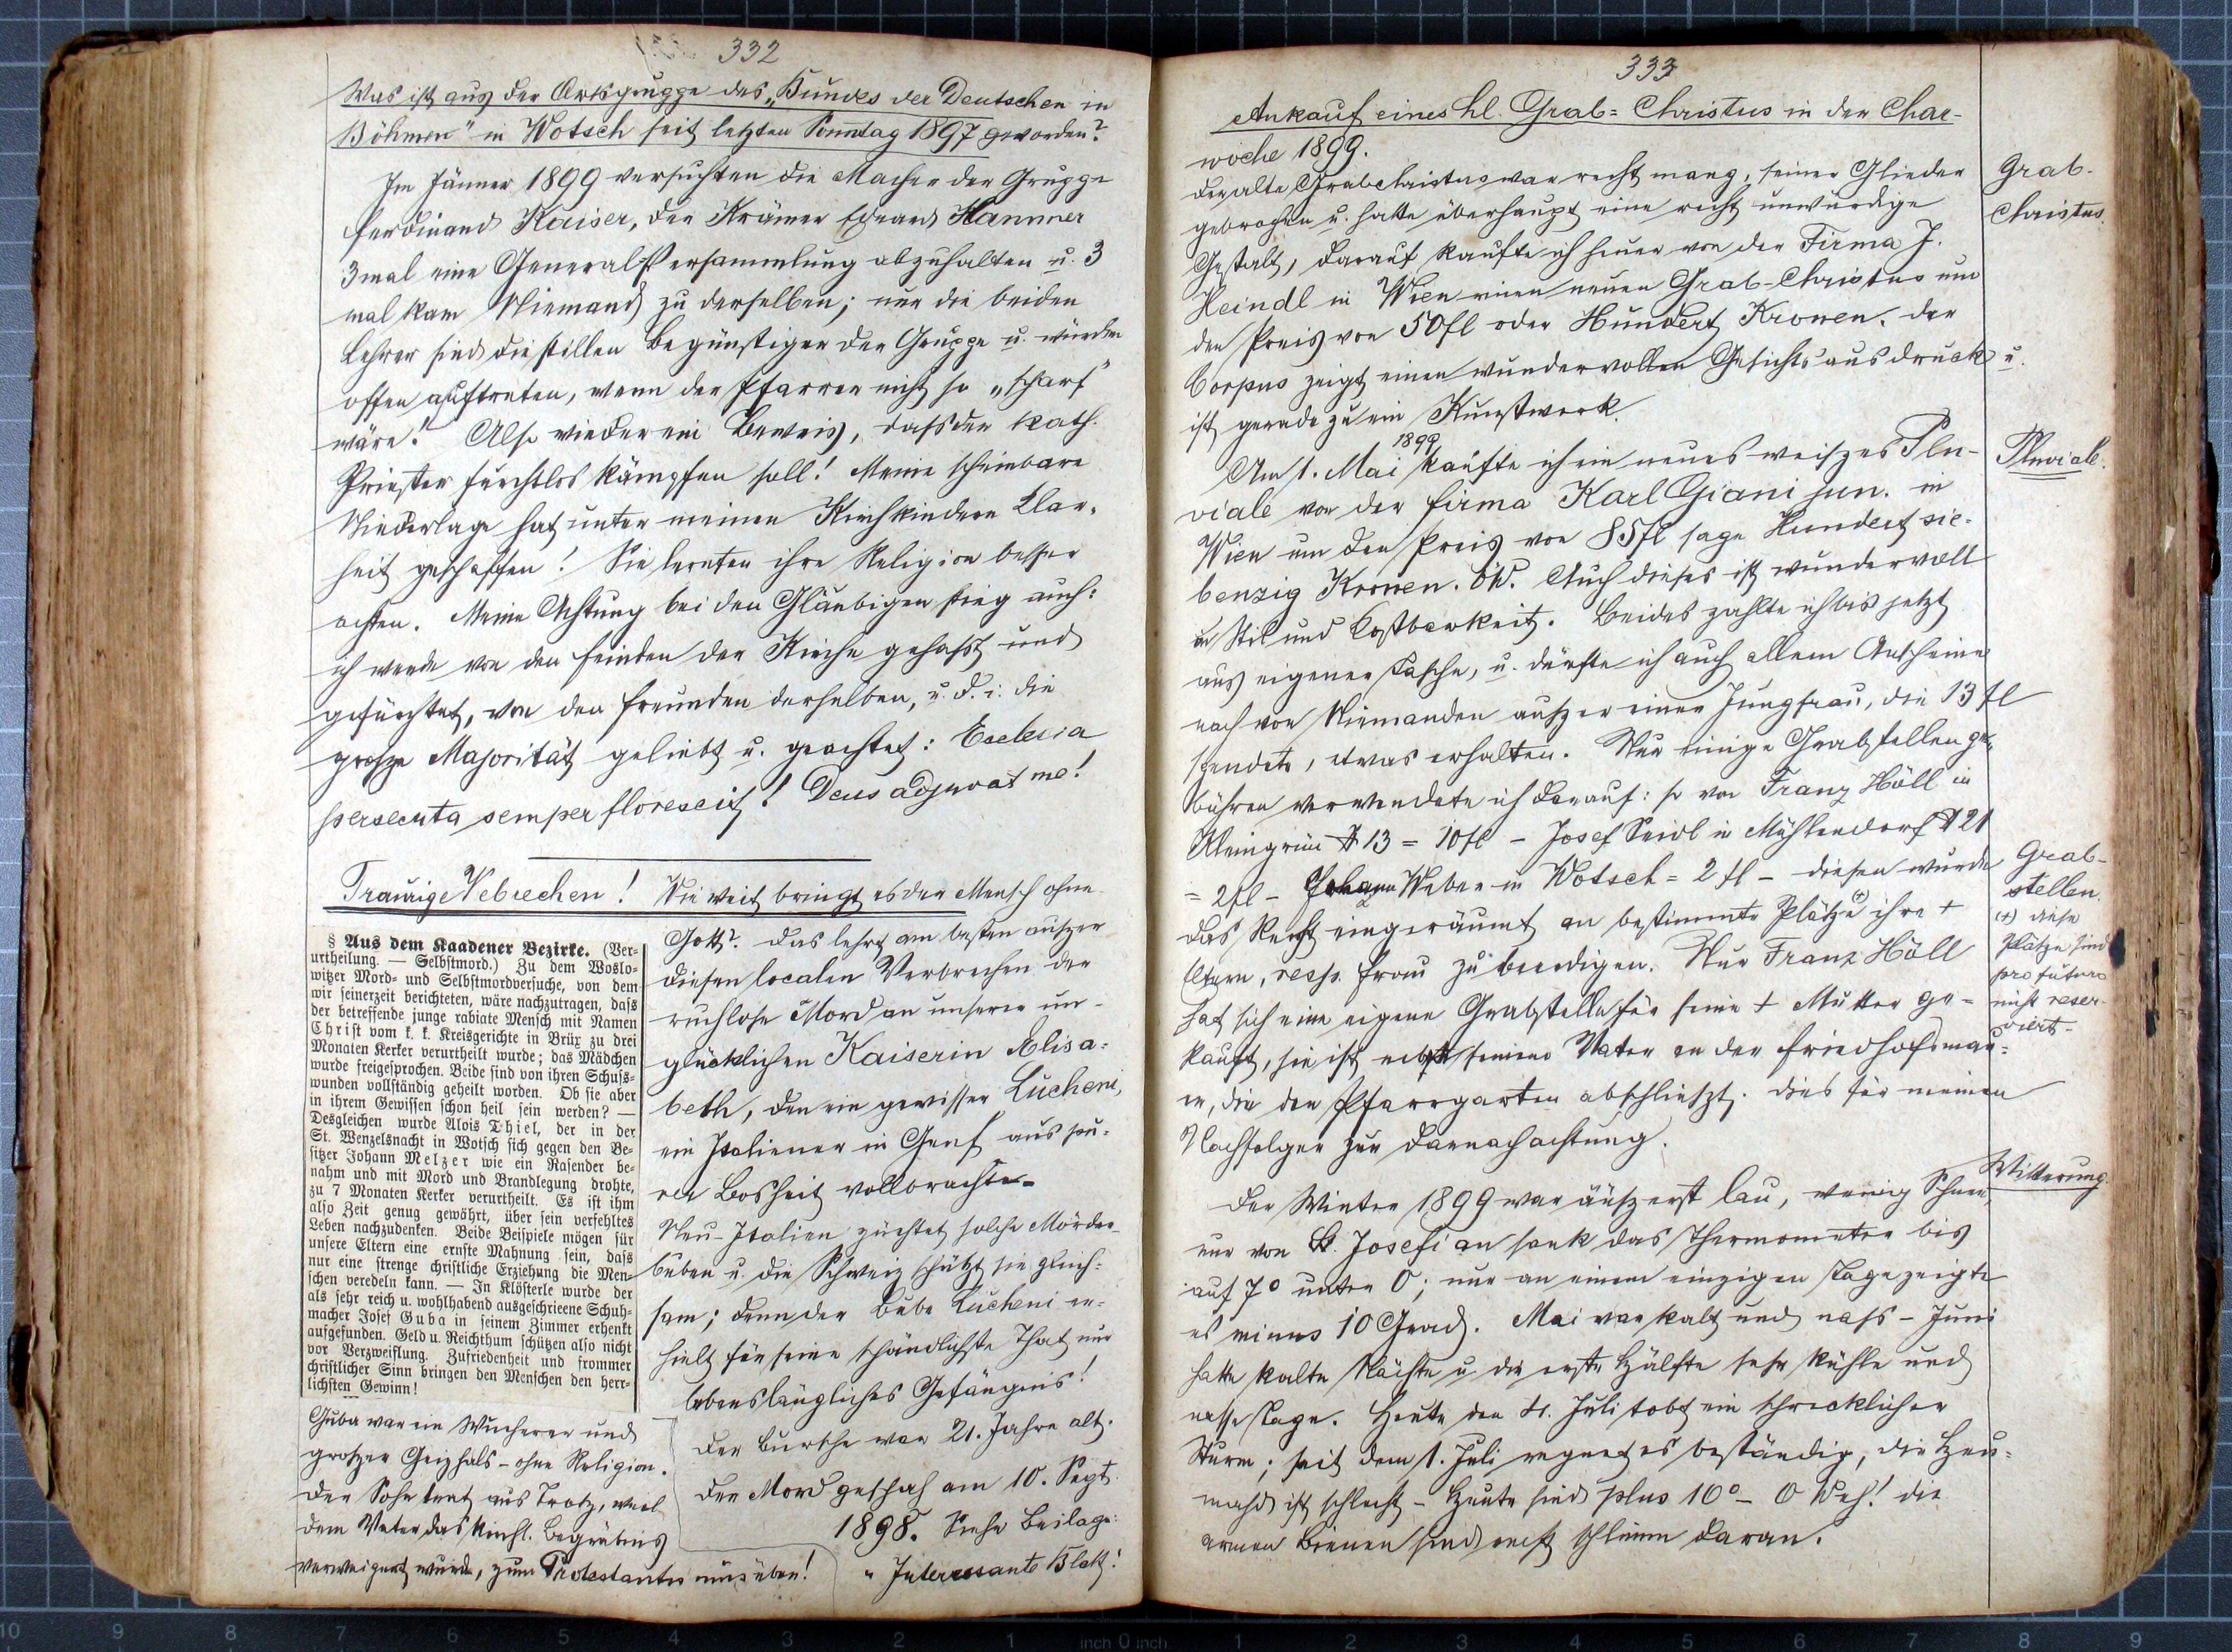 332
Was ist aus der Ortsgruppe des „Bundes der Deutschen in
Böhmen" in Wotsch seit letzten Sonntag 1897 geworden?
Im Jänner 1899 versuchten die Macher der Gruppe
Ferdinand Kaiser, der Krämer Eduard Hammer
3mal eine Generalversammlung abzuhalten u. 3
mal kam Niemand zu derselben; nur die beiden
Lehrer sind die stillen Begünstiger der Gruppe u. würden
offen auftreten, wenn der Pfarrer nicht so „scharf"
wäre! Also wieder ein Beweis, dass der kath.
Priester furchtlos kämpfen soll! Meine scheinbare
Niederlage hat unter meinen Kirchkindern Klar-
heit geschaffen! Sie lernten ihre Religion besser
achten. Meine Achtung bei den Gläubigen stieg auch:
ich werde von den Feinden der Kirche gehasst und
gefürchtet, von den Freunden derselben, u. d. i. die
grosze Majorität geliebt u. geachtet: Ecclesia
persecuta semper florescit! Deus adjuvat me!
Traurige Vebrechen! Wie weit bringt es der Mensch ohne
Gott? Das lehrt am besten auszer
diesen localen Verbrechen der
ruchlose Mord an unserer un-
glücklichen Kaiserin Elisa-
beth, den ein gewisser Lucheni,
ein Italiener in Genf aus pu-
rer Bosheit vollbrachte.
Neu-Italien züchtet solche Mörder-
buben u. die Schweiz schützt sie gleich-
sam; denn der Bube Lucheni er-
hielt für seine schändlichste That nur
lebenslängliches Gefängnis!
Der Bursche war 21. Jahre alt.
Der Mord geschah am 10. Sept.
1898. Siehe Beilage:
„Interessante Blatt!
§ Aus dem Kaadener Bezirke. (Ver-
urtheilung. — Selbstmord.) Zu dem Woslo-
witzer Mord- und Selbstmordversuche, von dem
wir seinerzeit berichteten, wäre nachzutragen, dass
der betreffende junge rabiate Mensch mit Namen
Christ vom k. k. Kreisgerichte in Brüx zu drei
Monaten Kerker verurtheilt wurde; das Mädchen
wurde freigesprochen. Beide sind von ihren Schuss-
wunden vollständig geheilt worden. Ob sie aber
in ihrem Gewissen schon heil sein werden? —
Desgleichen wurde Alois Thiel, der in der
St. Wenzelsnacht in Wotsch sich gegen den Be-
sitzer Johann Melzer wie ein Rasender be-
nahm und mit Mord und Brandlegung drohte,
zu 7 Monaten Kerker verurtheilt. Es ist ihm
also Zeit genug gewährt, über sein verfehltes
Leben nachzudenken. Beide Beispiele mögen für
unsere Eltern eine ernste Mahnung sein, dass
nur eine strenge christliche Erziehung die Men-
schen veredeln kann. — In Klösterle wurde der
als sehr reich u. wohlhabend ausgeschrieene Schuh-
macher Josef Guba in seinem Zimmer erhenkt
aufgefunden. Geld u. Reichthum schützen also nicht
vor Verzweiflung. Zufriedenheit und frommer
christlicher Sinn bringen den Menschen den herr-
lichsten Gewinn!
Guba war ein Wucherer und
groszer Geizhals - ohne Religion.
Der Sohn trat aus Trotz, weil
dem Vater das kirchl. Begräbnis
verweigert wurde, zum Protestantismus über!
333
Ankauf eines hl. Grab-Christus in der Char-
woche 1899.
Grab-
Christus.
Der alte Grabchristus war recht mang, seiner Glieder
gebrochen u. hatte überhaupt eine recht unwürdige
Gestalt, darauf kaufte ich heuer von der Firma J.
Heindl in Wien einen neuen Grab-Christus um
den Preis von 50fl oder Hundert Kronen. Der
Corpus zeigt einen wundervollen Gesichtsausdruck u.
ist geradezu ein Kunstwerk.
Am 1. Mai 1899 kaufte ich ein neues weiszes Plu-
Pluviale.
viale von der Firma Karl Giani jun. in
Wien um den Preis von 85fl sage Hundert sie-
benzig Kronen. ÖW. Auch dieses ist wundervoll
in Stil und Kostbarkeit. Beides zahlte ich bis jetzt
aus eigener Tasche, u. dürfte ich auch allem Anscheine
nach von Niemanden auszer einer Jungfrau, die 13 fl
spendete, etwas erhalten. Nur einige Grabstellen ge-
bühren verwendete ich darauf: so von Franz Höll in
Kleingrün # 13 = 10fl - Josef Seidl in Mühlendorf # 21
= 2fl - Johann Weber in Wotsch = 2 fl - diesen wurde
Grab-
stellen.
das Recht eingeräumt an bestimmte Plätze (+) ihre +
(+) diese
Plätze sind
pro futuro
nicht reser-
viert-
Eltern, resp. Frau zu beerdigen. Nur Franz Höll
hat sich eine eigene Grabstelle für seine + Mutter ge-
kauft, sie ist nebst seinem Vater an der Friedhofsmau-
er, die den Pfarrgarten abschlieszt. Dies für meinen
Nachfolger zur Darnachachtung.
Witterung.
Der Winter 1899 war äuszerst lau, wenig Schnee,
nur von St. Josefi an sank das Thermometer bis
auf 7° unter 0; nur an einem einzigen Tage zeigte
es minus 10 Grad. Mai war kalt und nass - Juni
hatte kalte Nächte u. die erste Hälfte sehr kühle und
nasse Tage. Heute den 4. Juli tobt ein schrecklicher
Sturm; seit dem 1. Juli regnet es beständig, die Heu-
mahd ist schlecht - Heute sind plus 10° - O Weh! die
armen Bienen sind recht schlimm daran.
10 9 8 7 6 5 4 3 2 1 inch 0 inch 1 2 3 4 5 6 7 8 9